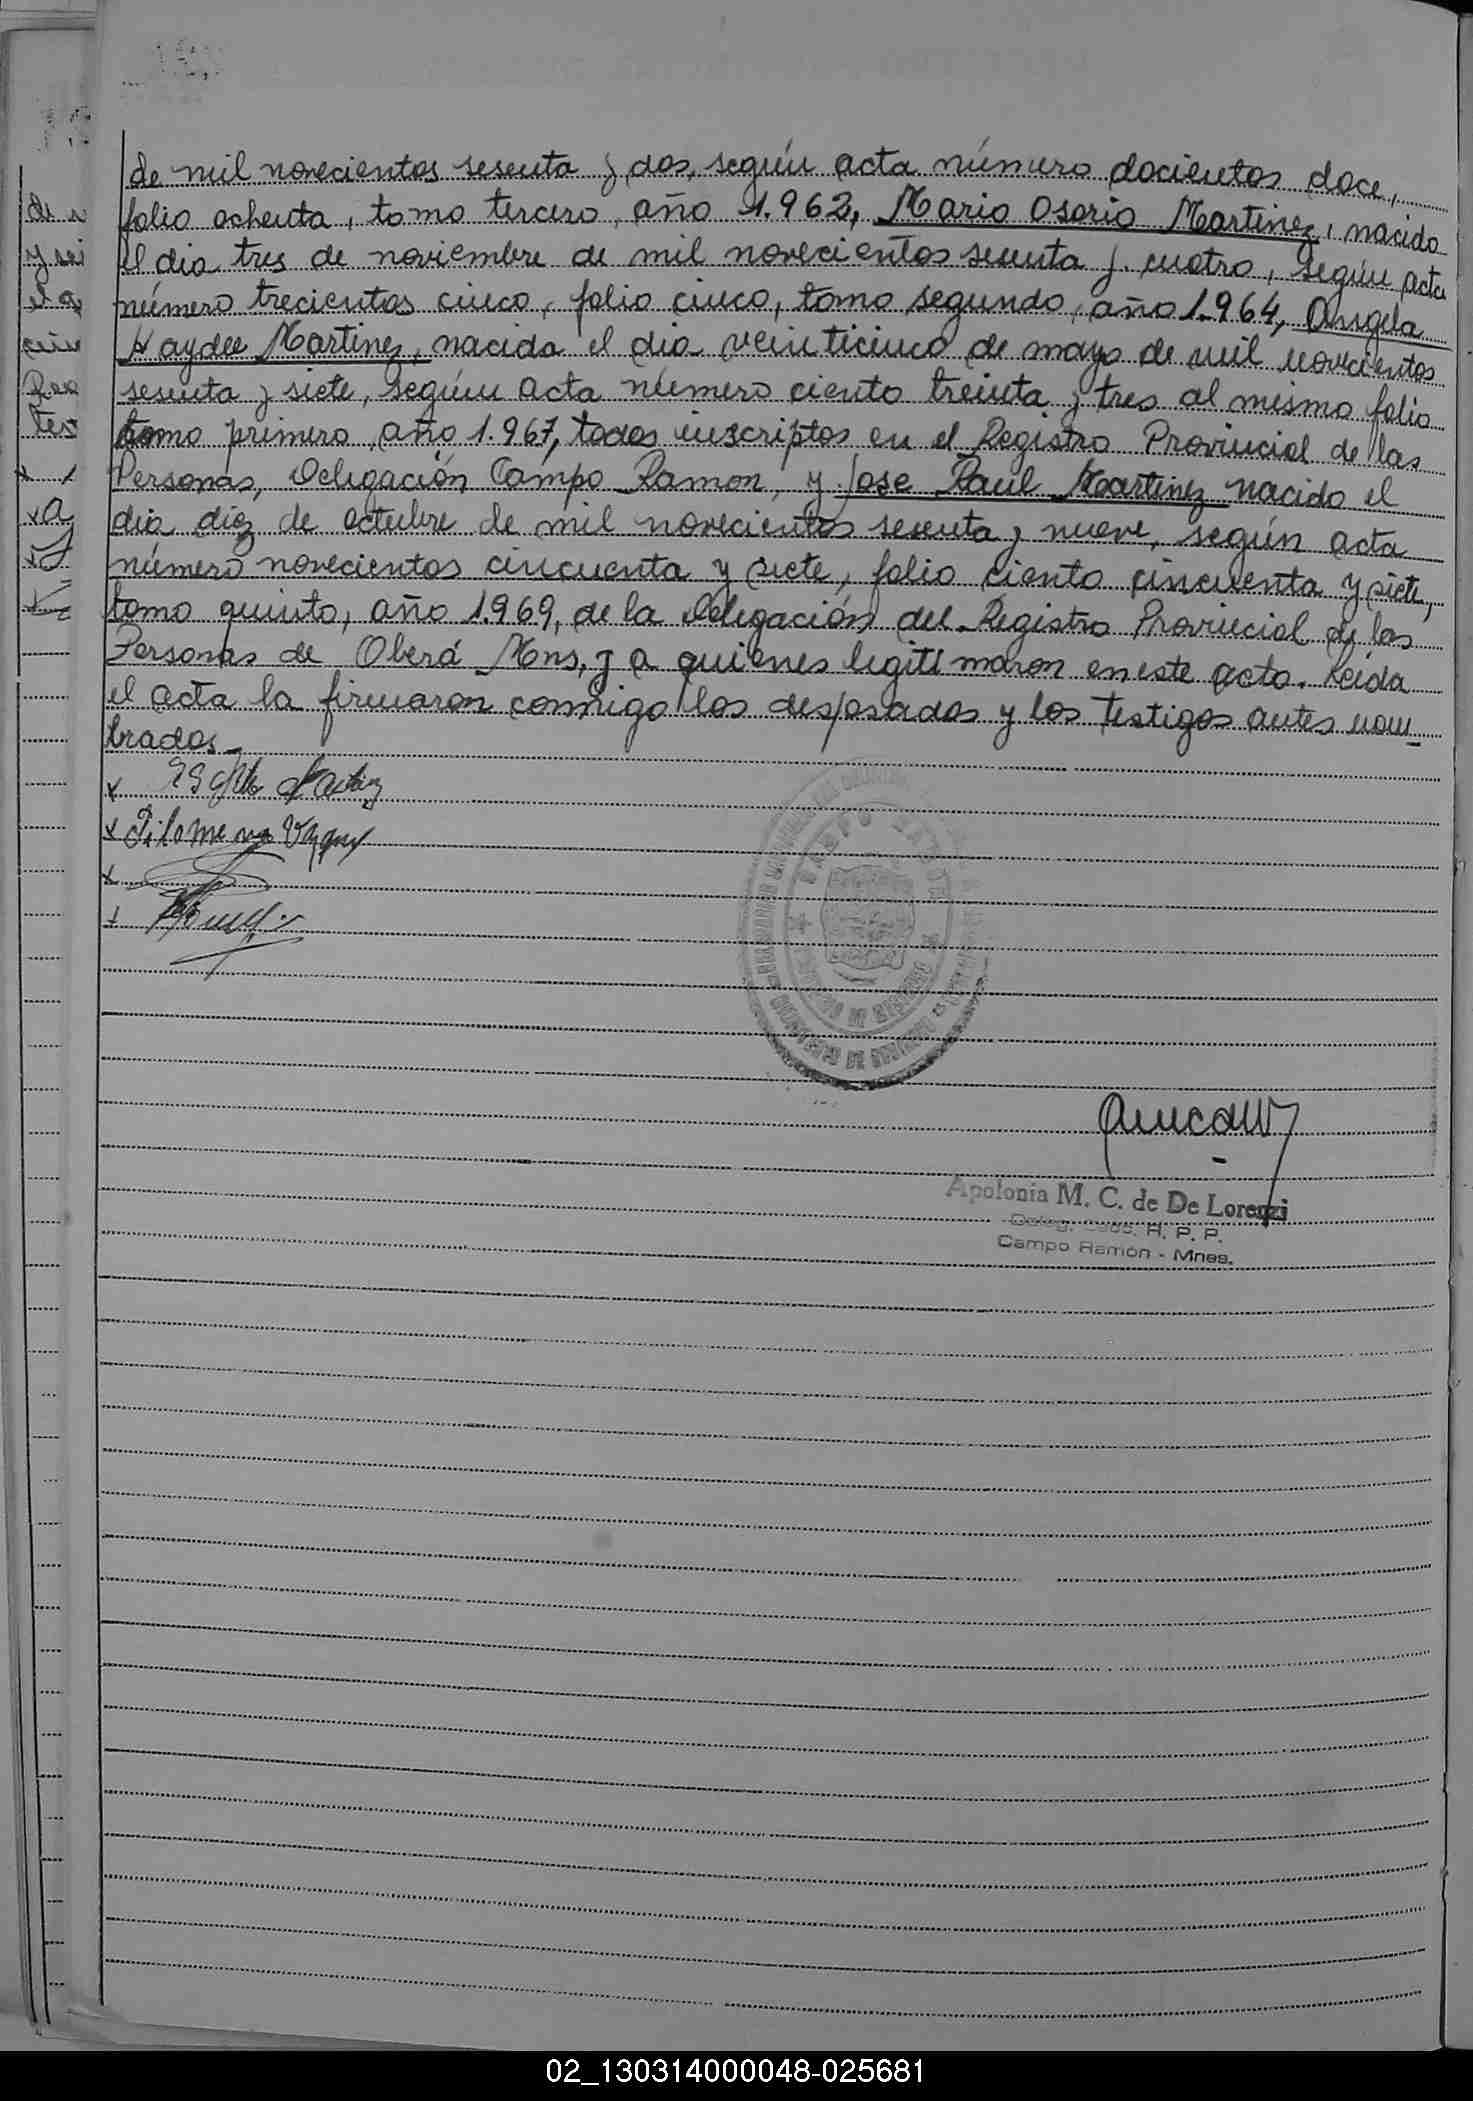 de mil novecientos sesenta y dos, según acta número docientos doce,
folio ochenta, tomo tercero, año 1.962, Mario Osorio Martinez, nacido
el dia tres de noviembre de mil novecientos sesenta y cuatro, según acta
número trecientos cinco, folio cinco, tomo segundo, año 1.964, Angela
Haydee Martinez, nacida el dia veinticinco de mayo de mil novecientos
sesenta y siete, según acta número ciento treinta y tres al mismo folio
tomo primero, año 1.967, todos inscriptos en el Registro Provincial de las
Personas, Delegación Campo Ramon, y Jose Raul Martinez nacido el
dia diez de octubre de mil novecientos sesenta y nueve, según acta
número novecientos cincuenta y siete, folio ciento cincuenta y siete,
tomo quinto, año 1.969, de la Delegación del Registro Provincial de las
Personas de Oberá Mns, y a quienes legitimaron en este acto. Leida
el acta la firmaron conmigo los desposados y los testigos antes nom
brados.-
x
x Filomena
x
x
CAMPO RAMON
Apolonia M. C. de De Lorenzi
R. P. P.
Campo Ramón - Mnes.
02_130314000048-025681